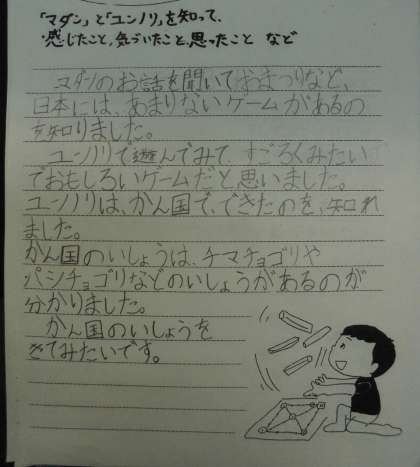 「マダン」と「ユンノリ」を知って、
・感じたこと，気づいたこと，思ったこと など
マダンのお話を聞いておまつりなど、
日本には、あまりないゲームがあるの
を知りました。
ユンノリで遊んでみて、すごろくみたい
でおもしろいゲームだと思いました。
ユンノリは、かん国で、できたのを、知れ
ました。
かん国のいしょうは、チマチョゴリや
パジチョゴリなどのいしょうがあるのが
分かりました。
かん国のいしょうを
きてみたいです。